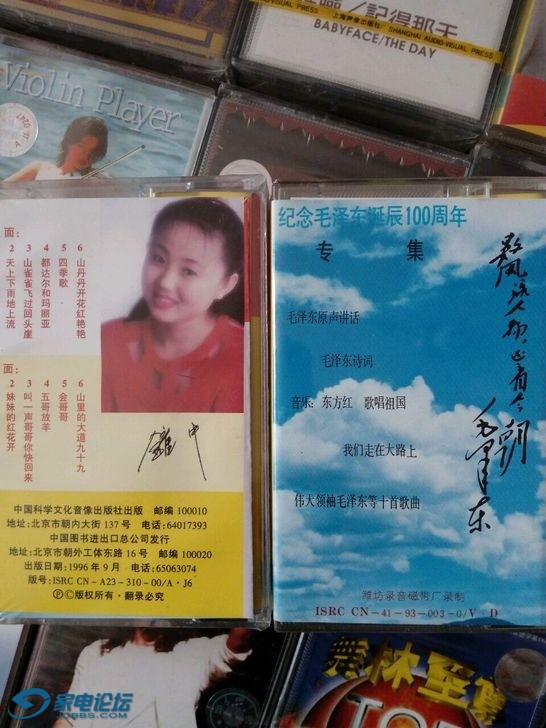 记得那天
BABYFACE/THE DAY
SUAL PRESS
上海声像出版社 SHANGHAI AUDIO-VISUAL PRESS
Violin Player
面:
2 天上下雨地上流
3 山雀雀飞过回头崖
4 都达尔和玛丽亚
5 四季歌
6 山丹丹开花红艳艳
面:
2 妹妹的红花开
3 叫一声哥哥你快回来
4 五哥放羊
5 会哥哥
6 山里的大道九十九
中国科学文化音像出版社出版 邮编 100010
地址:北京市朝内大街 137 号 电话:64017393
中国图书进出口总公司发行
地址:北京市朝外工体东路 16 号 邮编 100020
出版日期:1996 年 9 月 电话:65063074
版号:ISRC CN-A23-310-00/A·J6
ⓅⒸ版权所有·翻录必究
纪念毛泽东诞辰100周年
专集
毛泽东原声讲话
毛泽东诗词
音乐: 东方红 歌唱祖国
我们走在大路上
伟大领袖毛泽东等十首歌曲
数风流人物还看今朝
毛泽东
潍坊录音磁带厂录制
ISRC CN-41-93-003-0/V·D
舞林至尊
TOP
家电论坛
JDBBS.COM